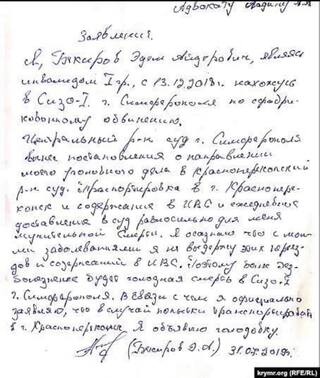 Адвокату Ладину А.А
Заявление.
Я, Бекиров Эдем Айдерович, являясь
инвалидом I гр., с 13.12.2018г. нахожусь
в Сизо-1. г. Симферополя по сфабри-
кованному обвинению.
Центральный р-н суд г. Симферополя
вынес постановления о направлении
моего уголовного дела в Красноперекопский
р-н суд. Транспортировка в г. Краснопере-
копск и содержание в ИВС и ежедневное
доставления в суд равносильно для меня
мучительной смерти. Я осознаю что с мои-
ми заболеваниями я не выдержу этих переез-
дов и содержаний в ИВС. Поэтому более без-
болезненее будет голодная смерть в Сизо-1
г. Симферополя. В связи с чем я официально
заявляю, что в случай попытки транспортировать
в г. Красноперекопск. Я объявлю голодовку.
(Бекиров Э.А.) 31.07.2019г.
krymr.org (RFE/RL)